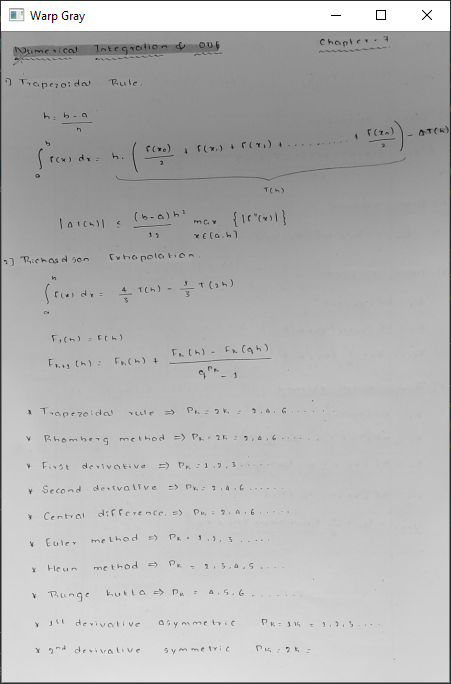 Warp Gray
Numerical Integration & ODE Chapter-7
1) Trapezoidal Rule.
h = b-a / n
∫_a^b f(x) dx = h · ( f(x₀)/2 + f(x₁) + f(x₂) + .......... + f(xₙ)/2 ) - ΔT(h)
T(h)
|ΔT(h)| ≤ (b-a)h²/12 max {|f''(x)|}
x∈[a,b]
2) Richardson Extrapolation.
∫_a^b f(x) dx = 4/3 T(h) - 1/3 T(2h)
F₁(h) = F(h)
Fₖ₊₁(h) = Fₖ(h) + (Fₖ(h) - Fₖ(qh)) / (q^Pₖ - 1)
* Trapezoidal rule => Pₖ = 2k = 2,4,6......
* Rhomberg method => Pₖ = 2k = 2,4,6......
* First derivative => Pₖ = 1,2,3.....
* Second derivative => Pₖ = 2,4,6.....
* Central difference => Pₖ = 2,4,6.....
* Euler method => Pₖ = 1,2,3.....
* Heun method => Pₖ = 2,3,4,5....
* Runge kutta => Pₖ = 4,5,6.......
* 1st derivative asymmetric Pₖ = 1k = 1,2,3....
* 2nd derivative symmetric Pₖ = 2k =